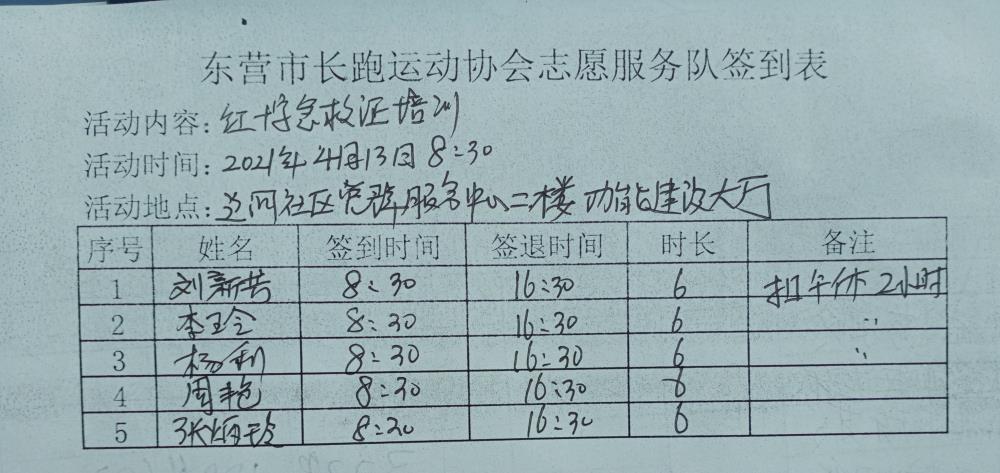 东营市长跑运动协会志愿服务队签到表
活动内容：红十字急救证培训
活动时间：2021年4月13日 8:30
活动地点：社区党群服务中心二楼 功能建设大厅
序号 姓名 签到时间 签退时间 时长 备注
1 刘新芳 8:30 16:30 6 扣午休2小时
2 李玉金 8:30 16:30 6 〃
3 杨利 8:30 16:30 6 〃
4 周艳 8:30 16:30 6
5 张 8:30 16:30 6